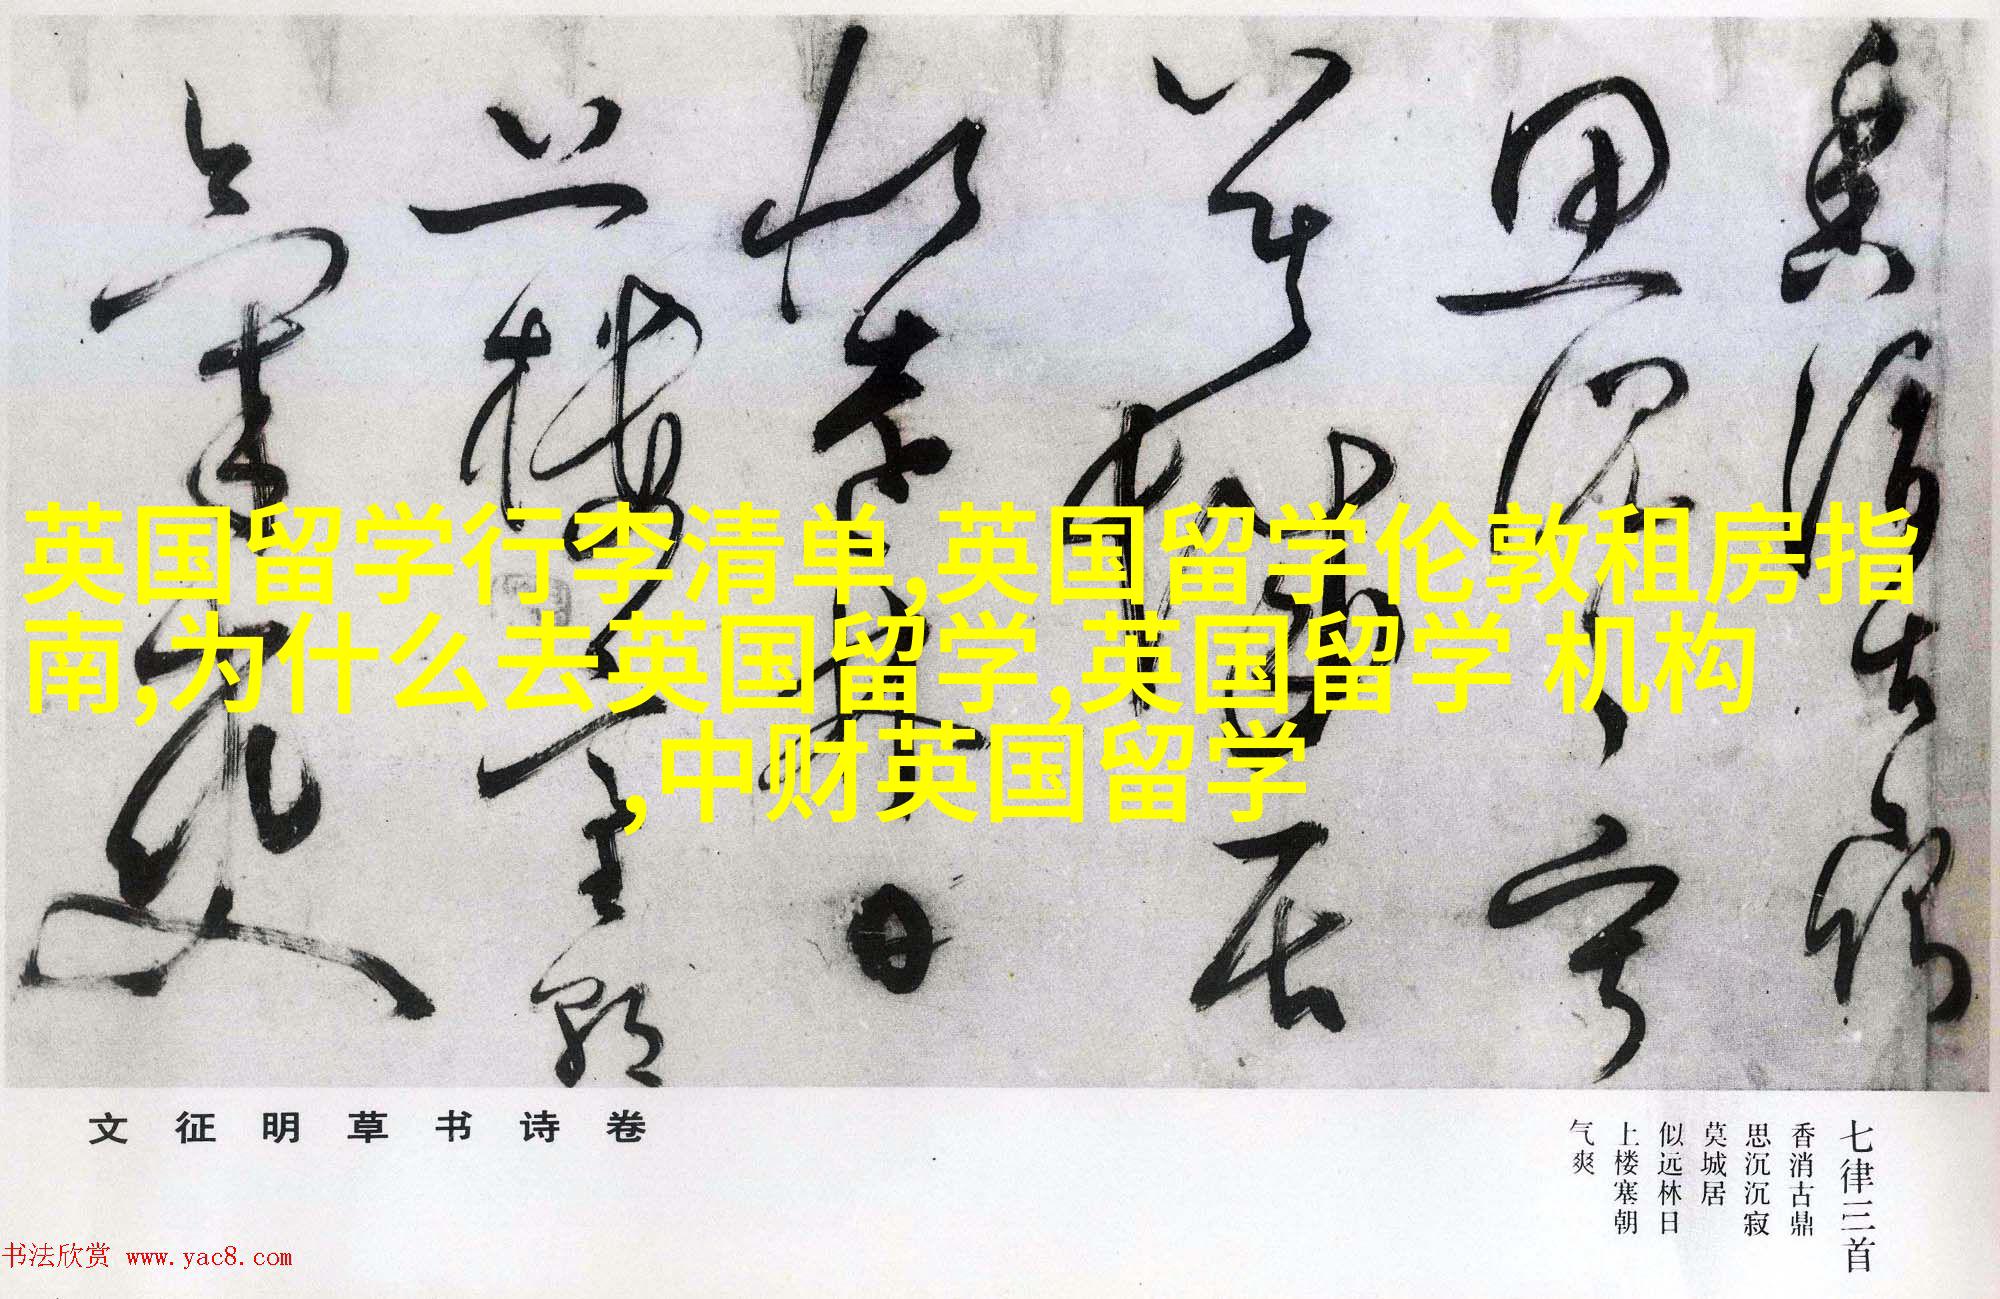 香消古鼎
思沉沉寂
莫城居
似远林日
上楼塞朝
气爽
英国留学行李清单,英国留学伦敦租房指
南,为什么去英国留学,英国留学 机构
,中财英国留学
文征明草书诗卷
七律三首
香消古鼎
思沉沉寂
莫城居
似远林日
上楼塞朝
气爽
书法欣赏 www.yac8.com